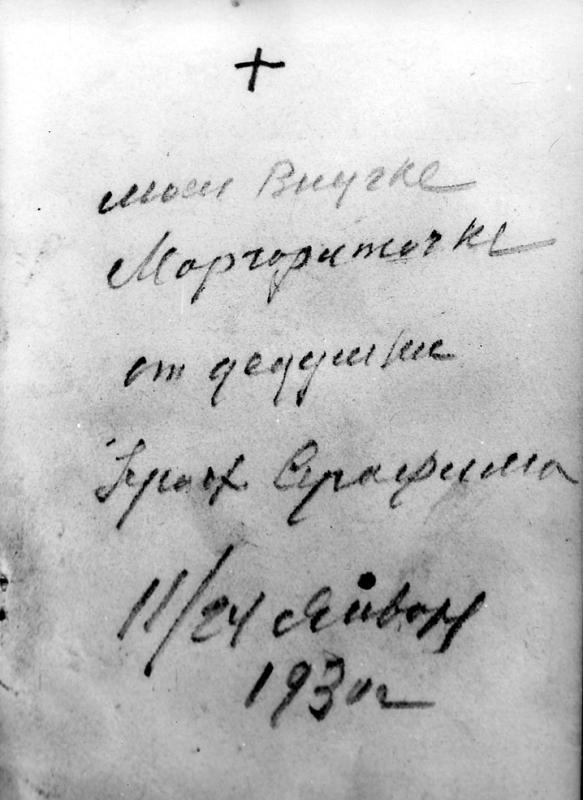 +
моей Внучке
Маргариточке
от дедушки
Серафима
11/24 Января
1930 г